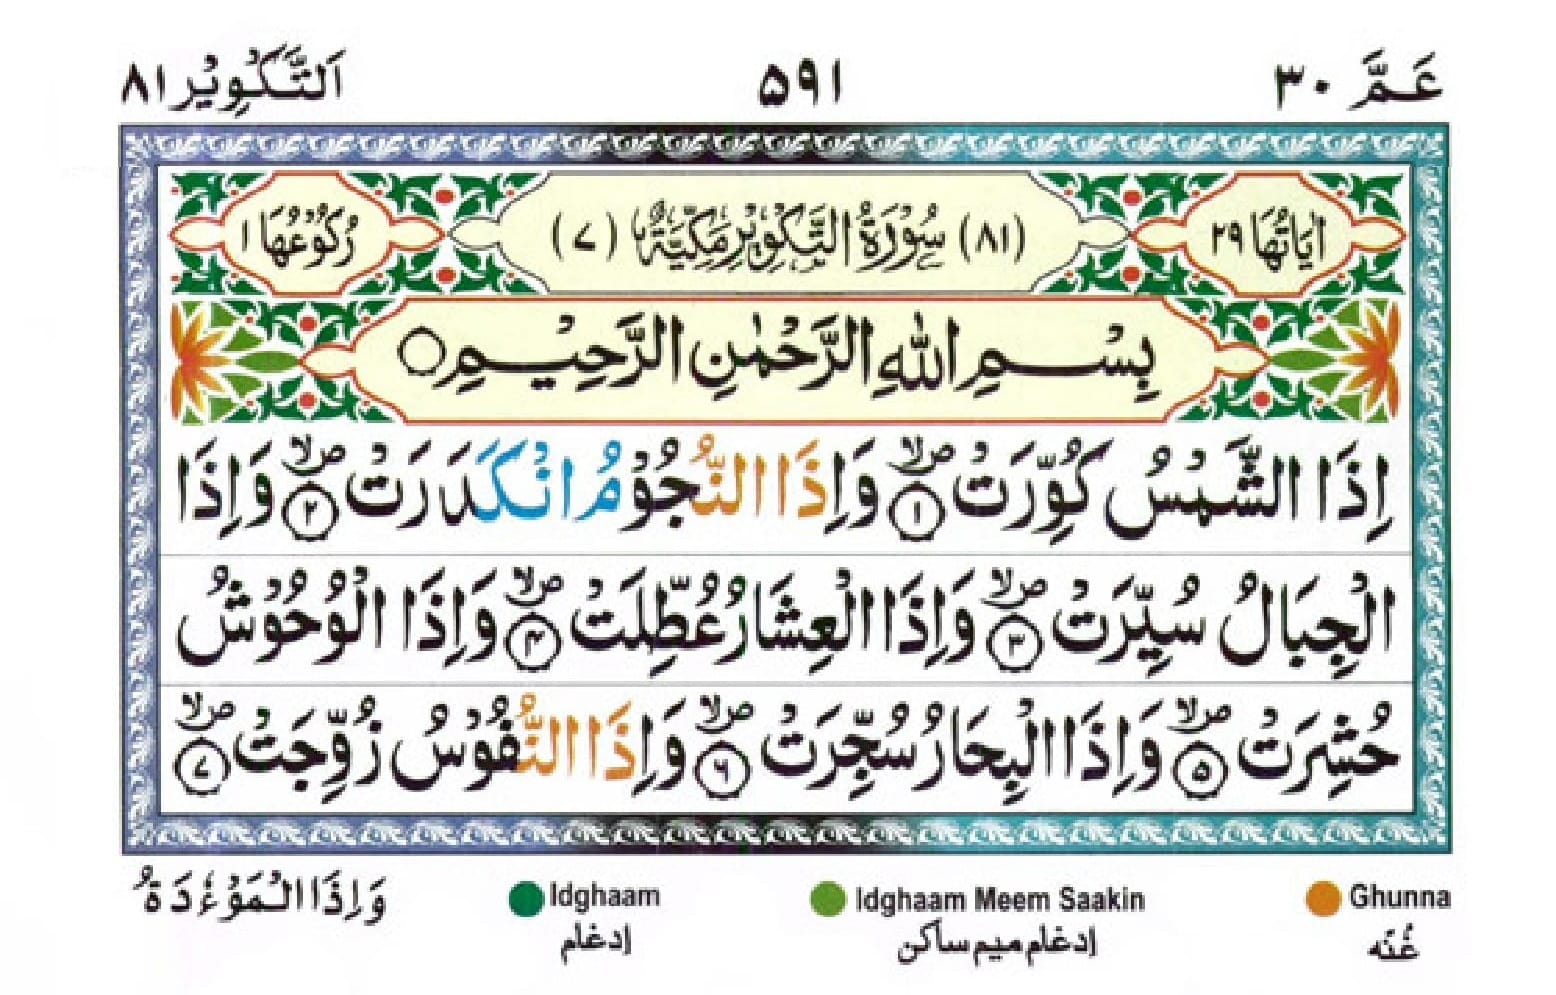 عَمَّ ٣٠
٥٩١
اَلتَّكْوِيْر ٨١
اٰيَاتُهَا ٢٩
(٨١) سُوْرَةُ التَّكْوِيْرِ مَكِّيَّةٌ (٧)
رُكُوْعُهَا ١
بِسْمِ اللّٰهِ الرَّحْمٰنِ الرَّحِيْمِ ○
اِذَا الشَّمْسُ كُوِّرَتْ ۪ۙ ﴿١﴾ وَاِذَا النُّجُوْمُ انْكَدَرَتْ ۪ۙ ﴿٢﴾ وَاِذَا
الْجِبَالُ سُيِّرَتْ ۪ۙ ﴿٣﴾ وَاِذَا الْعِشَارُ عُطِّلَتْ ۪ۙ ﴿۴﴾ وَاِذَا الْوُحُوْشُ
حُشِرَتْ ۪ۙ ﴿۵﴾ وَاِذَا الْبِحَارُ سُجِّرَتْ ۪ۙ ﴿۶﴾ وَاِذَا النُّفُوْسُ زُوِّجَتْ ۪ۙ ﴿٧﴾
وَاِذَا الْمَوْءٗدَةُ
Ghunna
Idghaam Meem Saakin
Idghaam
غُنّه
إدغام ميم ساكن
إدغام